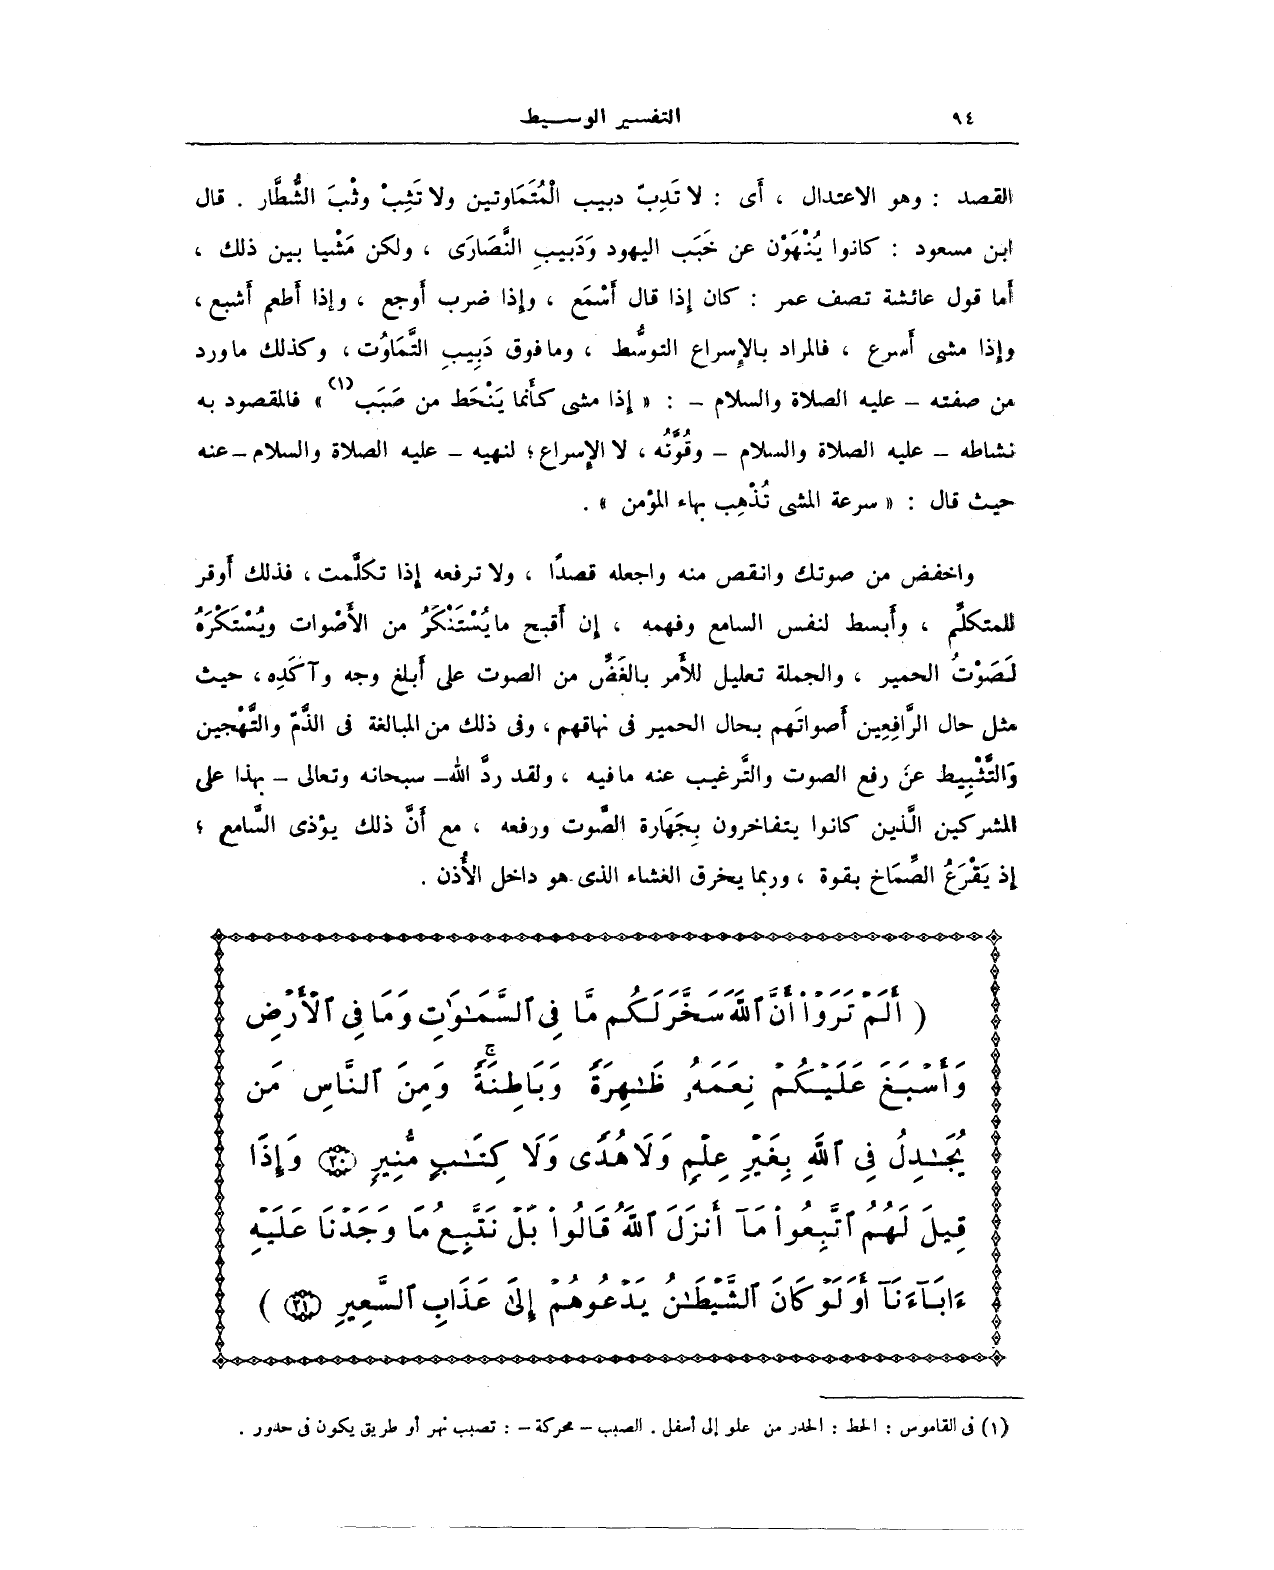 ٩٤
التفسير الوسيط
القصد : وهو الاعتدال ، أَى : لا تَدِبّ دبيب الْمُتَمَاوتين ولا تَثِبْ وثْبَ الشُّطَّار . قال
ابن مسعود : كانوا يُنْهَوْن عن خَبَب اليهود وَدَبيبِ النَّصَارَى ، ولكن مَشْيا بين ذلك ،
أما قول عائشة تصف عمر : كان إذا قال أَسْمَع ، وإذا ضرب أَوجع ، وإذا أطعم أَشبع ،
وإذا مشى أَسرع ، فالمراد بالإسراع التوسُّط ، وما فوق دَبِيبِ التَّمَاوُت ، وكذلك ما ورد
من صفته – عليه الصلاة والسلام – : « إذا مشى كأَنما يَنْحَط من صَبَب (١) » فالمقصود به
نشاطه – عليه الصلاة والسلام – وقُوَّتُه ، لا الإسراع ؛ لنهيه – عليه الصلاة والسلام – عنه
حيث قال : « سرعة المشى تُذْهِب بهاء المؤمن » .
واخفض من صوتك وانقص منه واجعله قصدًا ، ولا ترفعه إذا تكلَّمت ، فذلك أَوقر
للمتكلِّم ، وأَبسط لنفس السامع وفهمه ، إن أَقبح ما يُسْتَنْكَرُ من الأَصْوات ويُسْتَكْرَهُ
لَصَوْتُ الحمير ، والجملة تعليل للأَمر بالغَضِّ من الصوت على أَبلغ وجه وآكَدِه ، حيث
مثل حال الرَّافِعِين أَصواتَهم بحال الحمير فى نهاقهم ، وفى ذلك من المبالغة فى الذَّمّ والتَّهْجين
وَالتَّثْبِيط عن رفع الصوت والتَّرغيب عنه ما فيه ، ولقد ردَّ الله – سبحانه وتعالى – بهذا على
المشركين الَّذين كانوا يتفاخرون بِجَهَارة الصَّوت ورفعه ، مع أَنَّ ذلك يؤذى السَّامع ؛
إذ يَقْرَعُ الصِّمَاخ بقوة ، وربما يخرق الغشاء الذى هو داخل الأُذن .
( أَلَمْ تَرَوْا أَنَّ ٱللَّهَ سَخَّرَ لَكُم مَّا فِى ٱلسَّمَٰوَٰتِ وَمَا فِى ٱلْأَرْضِ
وَأَسْبَغَ عَلَيْكُمْ نِعَمَهُۥ ظَٰهِرَةً وَبَاطِنَةً ۗ وَمِنَ ٱلنَّاسِ مَن
يُجَٰدِلُ فِى ٱللَّهِ بِغَيْرِ عِلْمٍ وَلَا هُدًى وَلَا كِتَٰبٍ مُّنِيرٍ ﴿٢٠﴾ وَإِذَا
قِيلَ لَهُمُ ٱتَّبِعُوا۟ مَآ أَنزَلَ ٱللَّهُ قَالُوا۟ بَلْ نَتَّبِعُ مَا وَجَدْنَا عَلَيْهِ
ءَابَآءَنَآ أَوَلَوْ كَانَ ٱلشَّيْطَٰنُ يَدْعُوهُمْ إِلَىٰ عَذَابِ ٱلسَّعِيرِ ﴿٢١﴾ )
(١) فى القاموس : الحط : الحدر من علو إلى أسفل . الصبب – محركة – : تصبب نهر أو طريق يكون فى حدور .